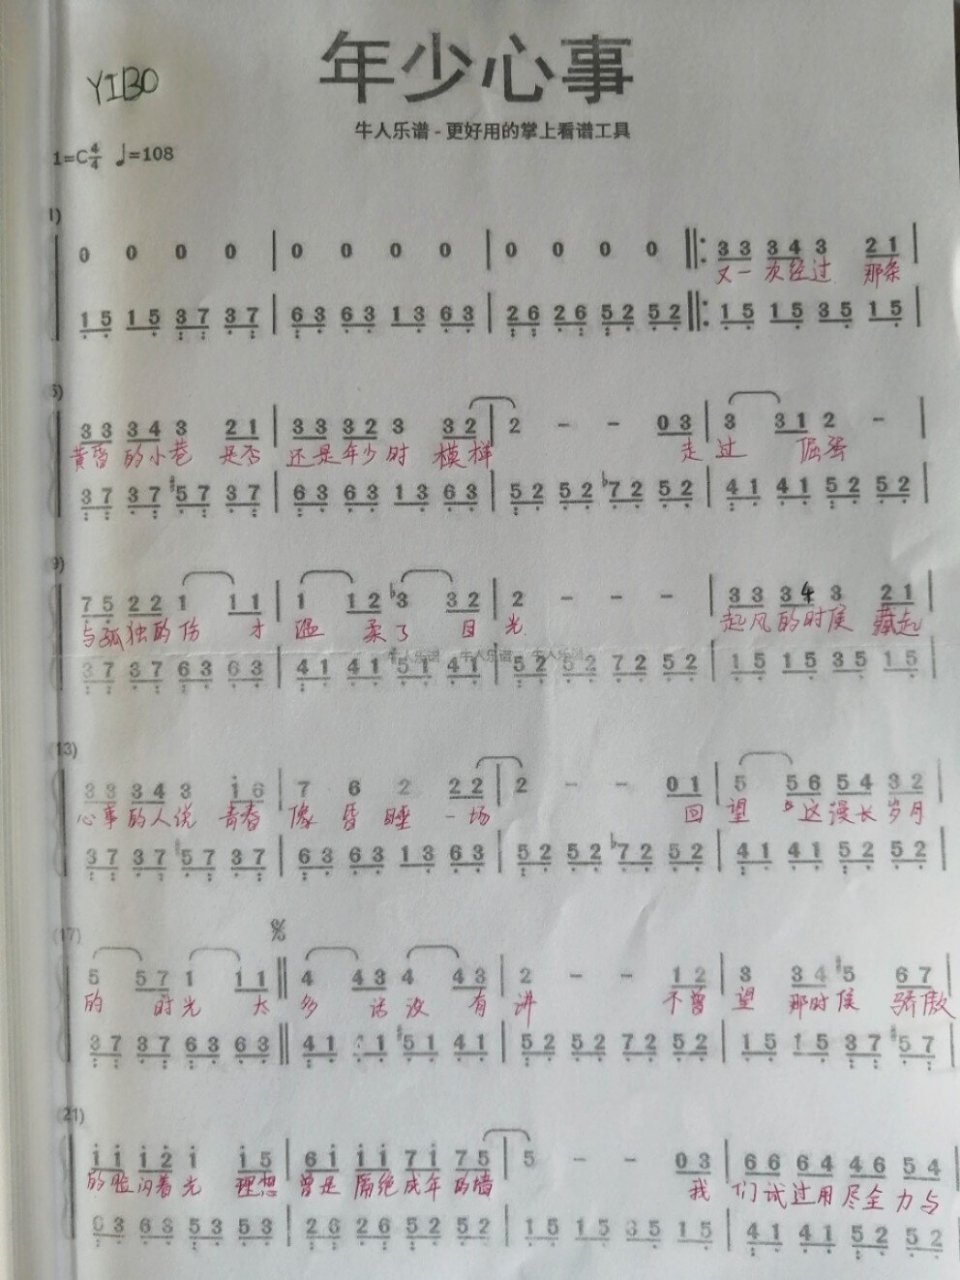 年少心事
YIBO
牛人乐谱 - 更好用的掌上看谱工具
1=C 4/4 ♩=108
1)
0 0 0 0 | 0 0 0 0 | 0 0 0 0 ‖: 3 3 3 4 3 2 1 |
又一次经过 那条
1 5 1 5 3 7 3 7 | 6 3 6 3 1 3 6 3 | 2 6 2 6 5 2 5 2 ‖: 1 5 1 5 3 5 1 5 |
5)
3 3 3 4 3 2 1 | 3 3 3 2 3 3 2 | 2 - - 0 3 | 3 3 1 2 - |
黄昏的小巷 是否 还是年少时 模样 走过 倔强
3 7 3 7 #5 7 3 7 | 6 3 6 3 1 3 6 3 | 5 2 5 2 b7 2 5 2 | 4 1 4 1 5 2 5 2 |
9)
7 5 2 2 1 1 1 | 1 1 2 b3 3 2 | 2 - - - | 3 3 3 4 3 2 1 |
与孤独的伤 才 温柔了 目光 起风的时候 藏起
牛人乐谱 牛人乐谱 牛人乐谱
3 7 3 7 6 3 6 3 | 4 1 4 1 5 1 4 1 | 5 2 5 2 7 2 5 2 | 1 5 1 5 3 5 1 5 |
(13)
3 3 3 4 3 i 6 | 7 6 2 2 2 | 2 - - 0 1 | 5 5 6 5 4 3 2 |
心事的人说 青春 像 昏睡 一场 回望 这漫长岁月
3 7 3 7 #5 7 3 7 | 6 3 6 3 1 3 6 3 | 5 2 5 2 b7 2 5 2 | 4 1 4 1 5 2 5 2 |
(17)
5 5 7 1 1 1 ‖ 4 4 3 4 4 3 | 2 - - 1 2 | 3 3 4 #5 6 7 |
的 时光 太 多 话没 有 讲 不曾 望 那时候 骄傲
3 7 3 7 6 3 6 3 ‖ 4 1 1 #5 1 4 1 | 5 2 5 2 7 2 5 2 | 1 5 1 5 3 7 #5 7 |
(21)
i i i 2 i i 5 | 6 i i i 7 i 7 5 | 5 - - 0 3 | 6 6 6 4 4 6 5 4 |
的脸闪着光 理想 曾是 隔绝成年 的墙 我 们试过用尽全力与
6 3 6 3 5 3 5 3 | 2 6 2 6 5 2 5 2 | 1 5 1 5 3 5 1 5 | 4 1 4 1 5 2 5 2